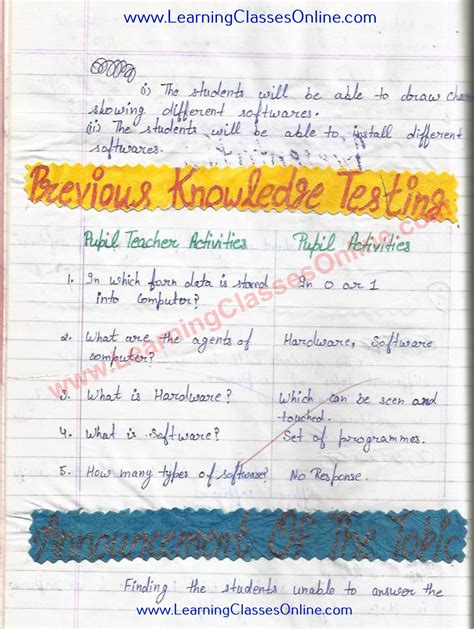 www.LearningClassesOnline.com
i) The students will be able to draw
showing different softwares.
(ii) The students will be able to install different
softwares.
Previous Knowledge Testing
Pupil Teacher Activities Pupil Activities
1. In which form data is stored In 0 or 1
into computer?
2. What are the agents of Hardware, Software
computer?
3. What is Hardware? Which can be seen and
touched.
4. What is Software? Set of programmes.
5. How many types of software? No Response.
Announcement Of The Topic
Finding the students unable to answer the
www.LearningClassesOnline.com
www.LearningClassesOnline.com